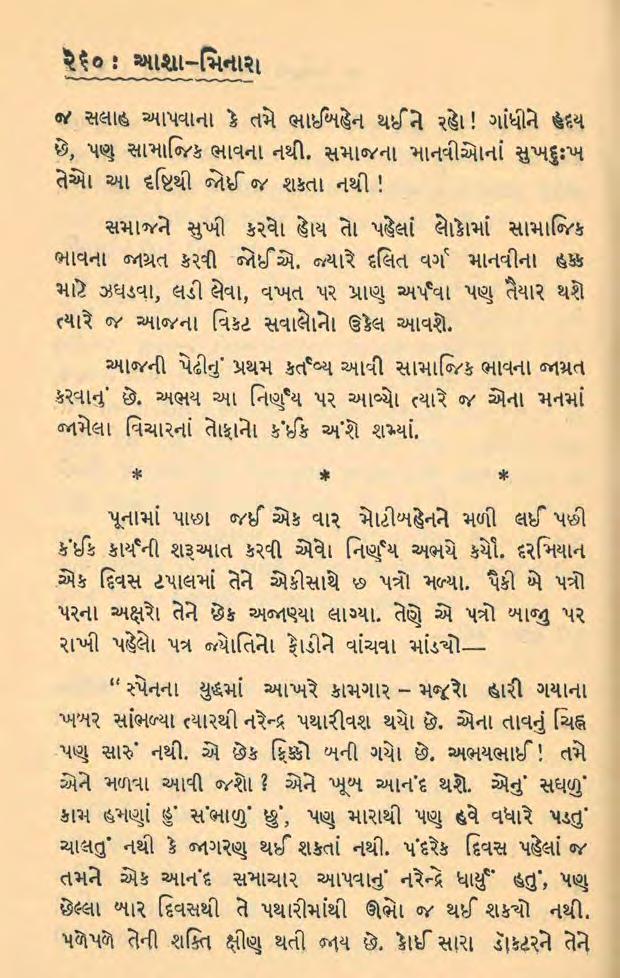 ૨૬૦ : આશા–મિનારા
જ સલાહ આપવાના કે તમે ભાઈબહેન થઈને રહો! ગાંધીને હૃદય
છે, પણ સામાજિક ભાવના નથી. સમાજના માનવીઓનાં સુખદુઃખ
તેઓ આ દૃષ્ટિથી જોઈ જ શકતા નથી!
સમાજને સુખી કરવો હોય તો પહેલાં લોકોમાં સામાજિક
ભાવના જાગ્રત કરવી જોઈએ. જ્યારે દલિત વર્ગ માનવીના હક્ક
માટે ઝઘડવા, લડી લેવા, વખત પર પ્રાણ અર્પવા પણ તૈયાર થશે
ત્યારે જ આજના વિકટ સવાલોનો ઉકેલ આવશે.
આજની પેઢીનું પ્રથમ કર્તવ્ય આવી સામાજિક ભાવના જાગ્રત
કરવાનું છે. અભય આ નિર્ણય પર આવ્યો ત્યારે જ એના મનમાં
જામેલા વિચારનાં તોફાનો કંઈક અંશે શમ્યાં.
* * *
પૂનામાં પાછા જઈ એક વાર મોટીબહેનને મળી લઈ પછી
કંઈક કાર્યની શરૂઆત કરવી એવો નિર્ણય અભયે કર્યો. દરમિયાન
એક દિવસ ટપાલમાં તેને એકીસાથે છ પત્રો મળ્યા. પૈકી બે પત્રો
પરના અક્ષરો તેને છેક અજાણ્યા લાગ્યા. તેણે એ પત્રો બાજુ પર
રાખી પહેલો પત્ર જ્યોતિનો ફોડીને વાંચવા માંડ્યો—
“સ્પેનના યુદ્ધમાં આખરે કામગાર – મજૂરો હારી ગયાના
ખબર સાંભળ્યા ત્યારથી નરેન્દ્ર પથારીવશ થયો છે. એના તાવનું ચિહ્ન
પણ સારું નથી. એ છેક ફિક્કો બની ગયો છે. અભયભાઈ! તમે
એને મળવા આવી જશો? એને ખૂબ આનંદ થશે. એનું સઘળું
કામ હમણાં હું સંભાળું છું, પણ મારાથી પણ હવે વધારે પડતું
ચાલતું નથી કે જાગરણ થઈ શકતાં નથી. પંદરેક દિવસ પહેલાં જ
તમને એક આનંદ સમાચાર આપવાનું નરેન્દ્રે ધાર્યું હતું, પણ
છેલ્લા બાર દિવસથી તે પથારીમાંથી ઊભો જ થઈ શક્યો નથી.
પળેપળે તેની શક્તિ ક્ષીણ થતી જાય છે. કોઈ સારા ડૉક્ટરને તેને